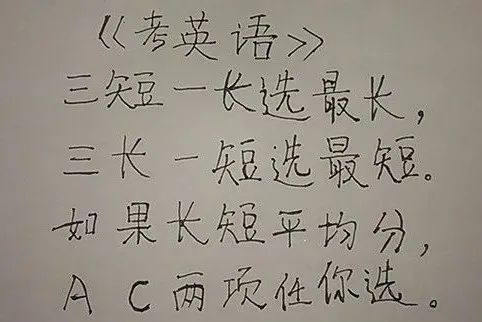 《考英语》
三短一长选最长，
三长一短选最短。
如果长短平均分，
A C两项任你选。